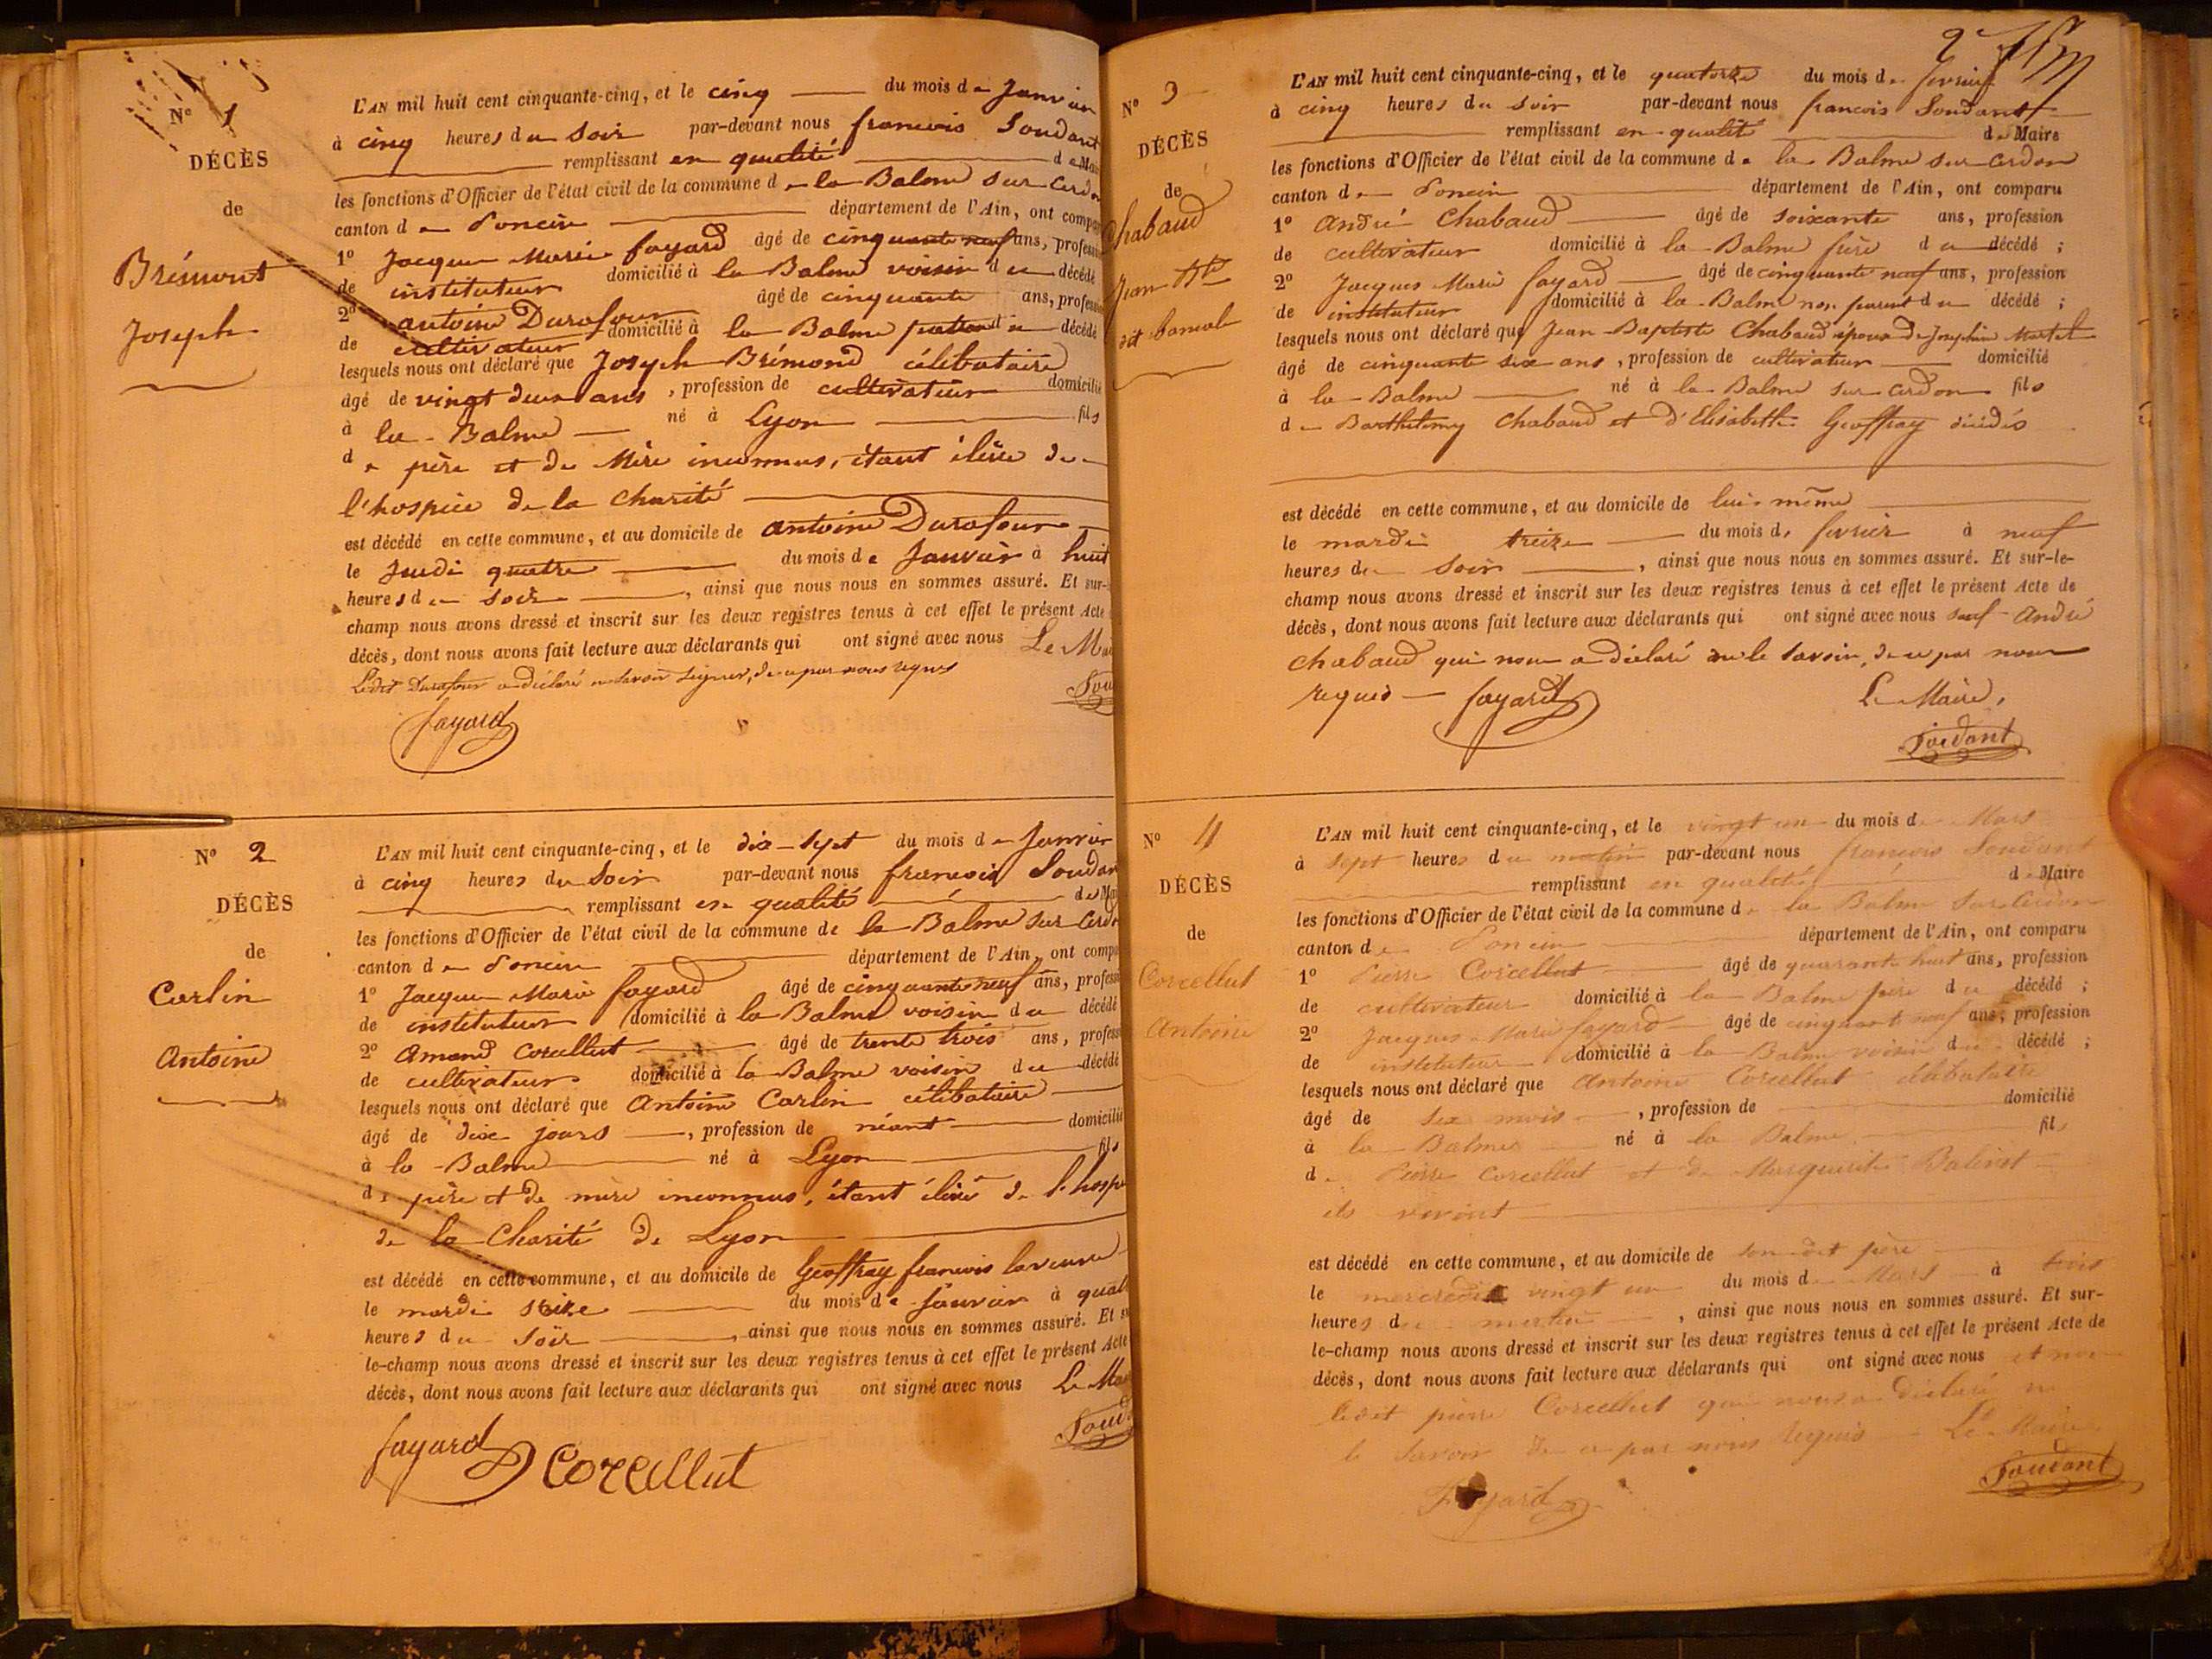 N° 1
DÉCÈS
de
Brémont
Joseph
L'AN mil huit cent cinquante-cinq, et le cinq du mois de Janvier
à cinq heures du soir par-devant nous françois Soudant
remplissant en qualité de Mai
les fonctions d'Officier de l'état civil de la commune de la Balme sur Cerdon
canton de Poncin département de l'Ain, ont compa
1° Jacques Marie fayard âgé de cinquante neuf ans, profess
de instituteur domicilié à la Balme voisin du décédé
2° antoine Durafour âgé de cinquante ans, profess
de cultivateur domicilié à la Balme patron du décédé
lesquels nous ont déclaré que Joseph Brémond célibataire
âgé de vingt deux ans, profession de cultivateur domicilié
à la Balme né à Lyon fils
de père et de Mère inconnus, étant élève de
l'hospice de la charité
est décédé en cette commune, et au domicile de antoine Durafour
le Jeudi quatre du mois de Janvier à huit
heures du soir, ainsi que nous nous en sommes assuré. Et sur-
champ nous avons dressé et inscrit sur les deux registres tenus à cet effet le présent Acte
décès, dont nous avons fait lecture aux déclarants qui ont signé avec nous Le Mai
Ledit Durafour a déclaré ne savoir signer, de ce par nous requis
fayard
Soud
N° 2
DÉCÈS
de
Carlin
Antoine
L'AN mil huit cent cinquante-cinq, et le dix-sept du mois de Janvier
à cinq heures du Soir par-devant nous françois Soudan
remplissant en qualité de Mai
les fonctions d'Officier de l'état civil de la commune de la Balme sur Cerdon
canton de Poncin département de l'Ain, ont compa
1° Jacques Marie fayard âgé de cinquante neuf ans, profess
de instituteur domicilié à la Balme voisin du décédé
2° Amand Corcellut âgé de trente trois ans, profess
de cultivateur domicilié à la Balme voisin du décédé
lesquels nous ont déclaré que Antoine Carlin célibataire
âgé de dix jours, profession de néant domicilié
à la Balme né à Lyon fils
de père et de mère inconnus, étant élève de l'hosp
de la Charité de Lyon
est décédé en cette commune, et au domicile de Geoffray françois laveuve
le mardi seize du mois de Janvier à quat
heures du Soir, ainsi que nous nous en sommes assuré. Et s
le-champ nous avons dressé et inscrit sur les deux registres tenus à cet effet le présent Acte
décès, dont nous avons fait lecture aux déclarants qui ont signé avec nous Le Ma
fayard Corcellut
Soud
2e
N° 3
DÉCÈS
de
Chabaud
Jean Bte
dit
L'AN mil huit cent cinquante-cinq, et le quatorze du mois de fevrier
à cinq heures du soir par-devant nous françois Soudant
remplissant en qualité de Maire
les fonctions d'Officier de l'état civil de la commune de la Balme sur cerdon
canton de Poncin département de l'Ain, ont comparu
1° André Chabaud âgé de soixante ans, profession
de cultivateur domicilié à la Balme frère du décédé;
2° Jacques Marie fayard âgé de cinquante neuf ans, profession
de instituteur domicilié à la Balme non parent du décédé;
lesquels nous ont déclaré que Jean Baptiste Chabaud époux de Josephine Martel
âgé de cinquante six ans, profession de cultivateur domicilié
à la Balme né à la Balme sur cerdon fils
de Barthelemy Chabaud et d'Elisabeth Geoffray décédés
est décédé en cette commune, et au domicile de lui-même
le mardi treize du mois de fevrier à neuf
heures du Soir, ainsi que nous nous en sommes assuré. Et sur-le-
champ nous avons dressé et inscrit sur les deux registres tenus à cet effet le présent Acte de
décès, dont nous avons fait lecture aux déclarants qui ont signé avec nous sauf André
Chabaud qui nous a déclaré ne le savoir, de ce par nous
requis fayard Le Maire,
Soudant
N° 4
DÉCÈS
de
Corcellut
Antoine
L'AN mil huit cent cinquante-cinq, et le vingt un du mois de Mars
à sept heures du matin par-devant nous françois Soudant
remplissant en qualité de Maire
les fonctions d'Officier de l'état civil de la commune de la Balme sur Cerdon
canton de Poncin département de l'Ain, ont comparu
1° Pierre Corcellut âgé de quarante huit ans, profession
de cultivateur domicilié à la Balme père du décédé;
2° Jacques Marie fayard âgé de cinquante neuf ans, profession
de instituteur domicilié à la Balme voisin du décédé;
lesquels nous ont déclaré que Antoine Corcellut célibataire
âgé de six mois, profession de domicilié
à la Balme né à la Balme fils
de Pierre Corcellut et de Marguerite Balivet
ils vivent
est décédé en cette commune, et au domicile de son dit père
le mercredi vingt un du mois de Mars à trois
heures du matin, ainsi que nous nous en sommes assuré. Et sur-
le-champ nous avons dressé et inscrit sur les deux registres tenus à cet effet le présent Acte de
décès, dont nous avons fait lecture aux déclarants qui ont signé avec nous et non
ledit pierre Corcellut qui nous a déclaré ne
le Savoir de ce par nous requis Le Maire,
Fayard
Soudant